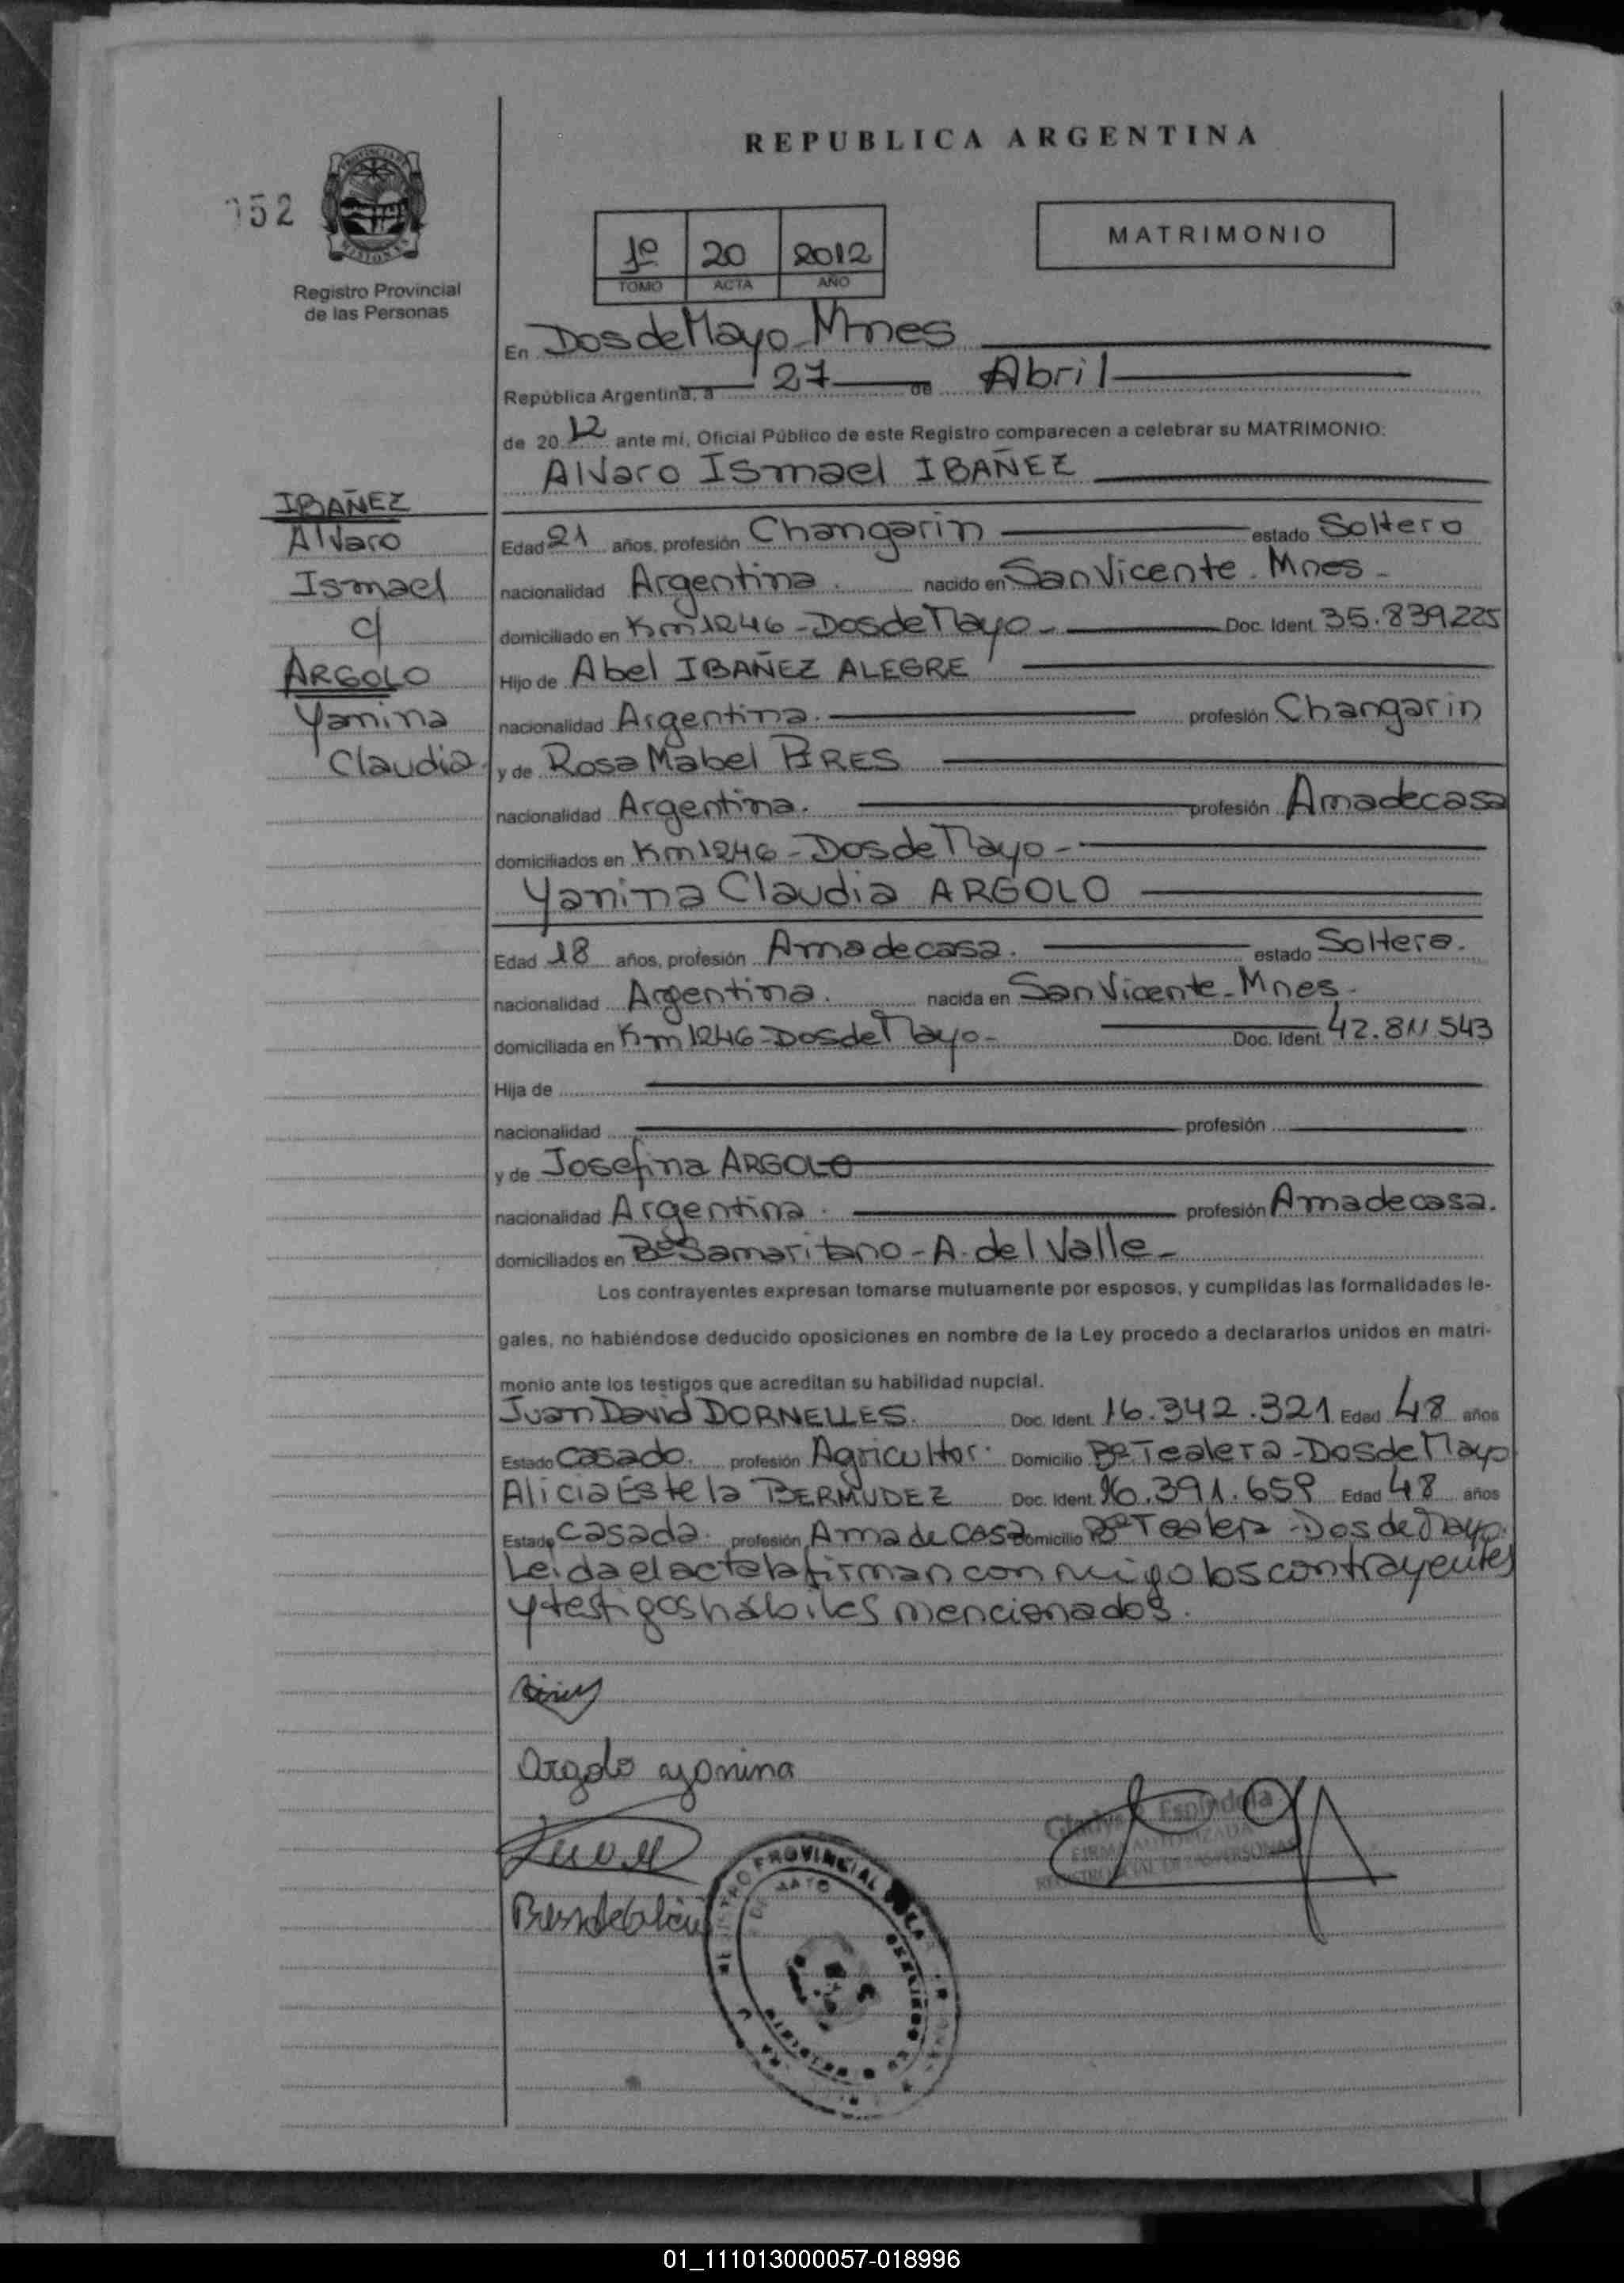 REPUBLICA ARGENTINA
052
MATRIMONIO
1º 20 2012
TOMO ACTA AÑO
Registro Provincial
de las Personas
En Dos de Mayo Mnes
República Argentina, a 27 de Abril
de 2012 ante mi, Oficial Público de este Registro comparecen a celebrar su MATRIMONIO:
Alvaro Ismael IBAÑEZ
IBAÑEZ
Alvaro
Ismael
c/
ARGOLO
Yanina
Claudia
Edad 21 años, profesión Changarin estado Soltero
nacionalidad Argentina. nacido en San Vicente - Mnes -
domiciliado en Km 1246 - Dos de Mayo - Doc. Ident. 35.839.225
Hijo de Abel IBAÑEZ ALEGRE
nacionalidad Argentina. profesión Changarin
y de Rosa Mabel PIRES
nacionalidad Argentina. profesión Ama de casa
domiciliados en Km 1246 - Dos de Mayo -
Yanina Claudia ARGOLO
Edad 18 años, profesión Ama de casa. estado Soltera.
nacionalidad Argentina. nacida en San Vicente - Mnes -
domiciliada en Km 1246 - Dos de Mayo - Doc. Ident. 42.811.543
Hija de
nacionalidad profesión
y de Josefina ARGOLO
nacionalidad Argentina. profesión Ama de casa.
domiciliados en Bº Samaritano - A. del Valle -
Los contrayentes expresan tomarse mutuamente por esposos, y cumplidas las formalidades le-
gales, no habiéndose deducido oposiciones en nombre de la Ley procedo a declararlos unidos en matri-
monio ante los testigos que acreditan su habilidad nupcial.
Juan David DORNELLES. Doc. Ident. 16.342.321 Edad 48 años
Estado Casado. profesión Agricultor. Domicilio Bº Tealera - Dos de Mayo
Alicia Estela BERMUDEZ Doc. Ident. 16.391.659 Edad 48 años
Estado Casada. profesión Ama de Casa Domicilio Bº Tealera - Dos de Mayo.
Leida el acta la firman conmigo los contrayentes
y testigos hábiles mencionados.
Argolo yanina
Gladys Espindola
FIRMA AUTORIZADA
REGISTRO PROVINCIAL DE LAS
01_111013000057-018996